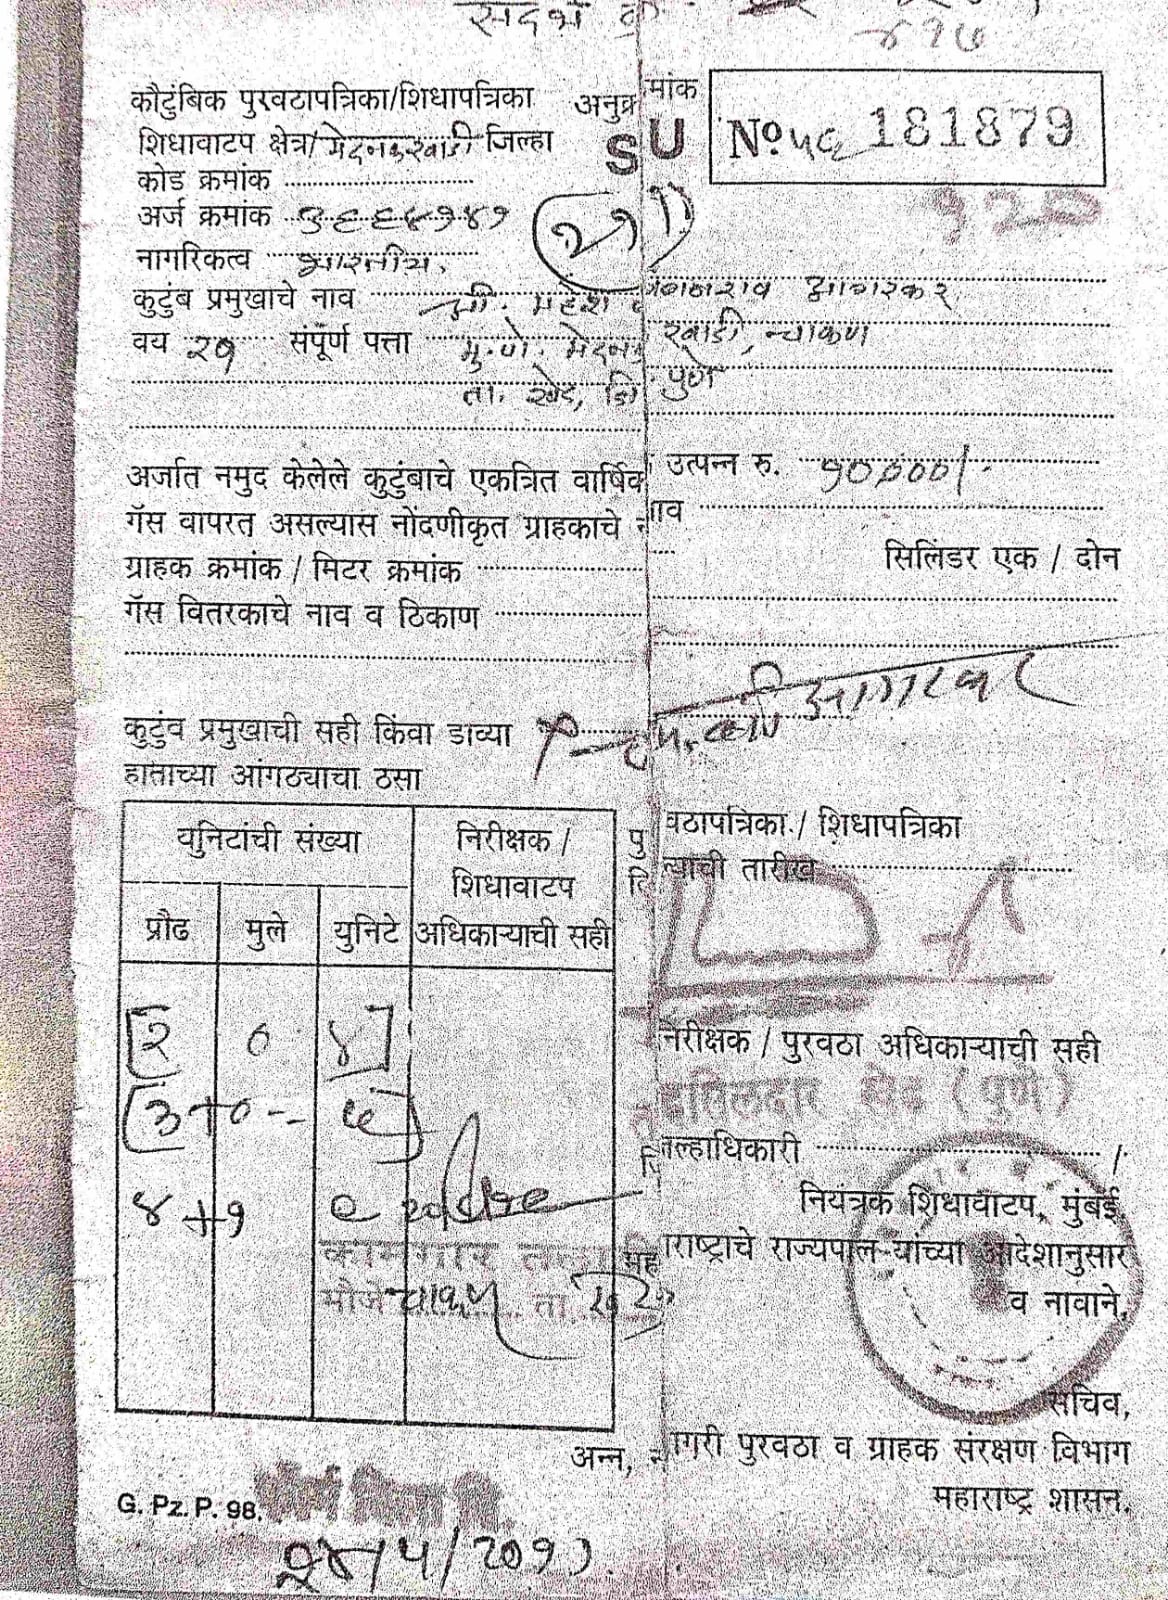 संदर्भ क्र
४१७
कौटुंबिक पुरवठापत्रिका/शिधापत्रिका अनुक्रमांक
शिधावाटप क्षेत्र/मेदनकरवाडी जिल्हा SU No ५८ 181879
कोड क्रमांक
920
अर्ज क्रमांक ३६६४१४१
नागरिकत्व भारतीय.
कुटुंब प्रमुखाचे नाव श्री. महेश आगरकर
वय २१ संपूर्ण पत्ता मु.पो. मेदनकरवाडी, चाकण
ता. खेड, जि पुणे
अर्जात नमुद केलेले कुटुंबाचे एकत्रित वार्षिक उत्पन्न रु. १००००/-
गॅस वापरत असल्यास नोंदणीकृत ग्राहकाचे नाव
ग्राहक क्रमांक / मिटर क्रमांक सिलिंडर एक / दोन
गॅस वितरकाचे नाव व ठिकाण
कुटुंव प्रमुखाची सही किंवा डाव्या आगरकर
हाताच्या आंगठ्याचा ठसा
युनिटांची संख्या निरीक्षक / पुरवठापत्रिका / शिधापत्रिका
शिधावाटप दिल्याची तारीख
प्रौढ मुले युनिटे अधिकाऱ्याची सही
२ ० ४
निरीक्षक / पुरवठा अधिकाऱ्याची सही
३+० -- ६
तहसिलदार खेड (पुणे)
जिल्हाधिकारी /
४+१ ९
नियंत्रक शिधावाटप, मुंबई,
कामगार तलाठी महाराष्ट्राचे राज्यपाल यांच्या आदेशानुसार
मौजे चाकण ता. खेड व नावाने,
सचिव,
अन्न, नागरी पुरवठा व ग्राहक संरक्षण विभाग
महाराष्ट्र शासन.
G. Pz. P. 98.